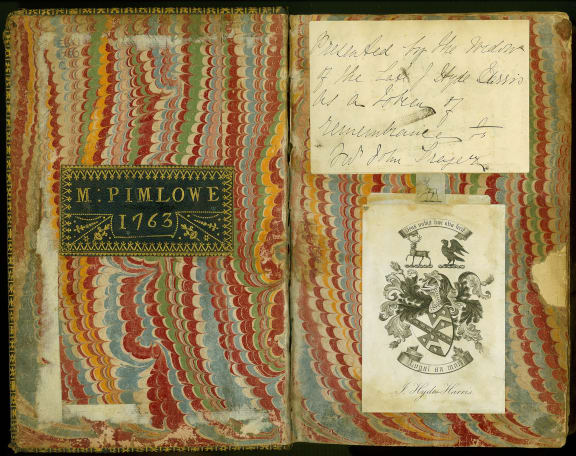 M: PIMLOWE
1763
Presented by the Widow
of the Late J Hyde Harris
as a Token of
remembrance to
John
J. Hyde Harris